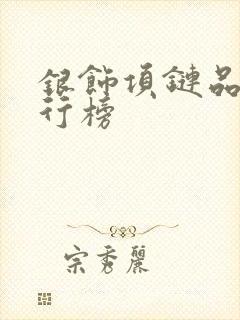 銀飾項鏈品
行榜
宗秀麗